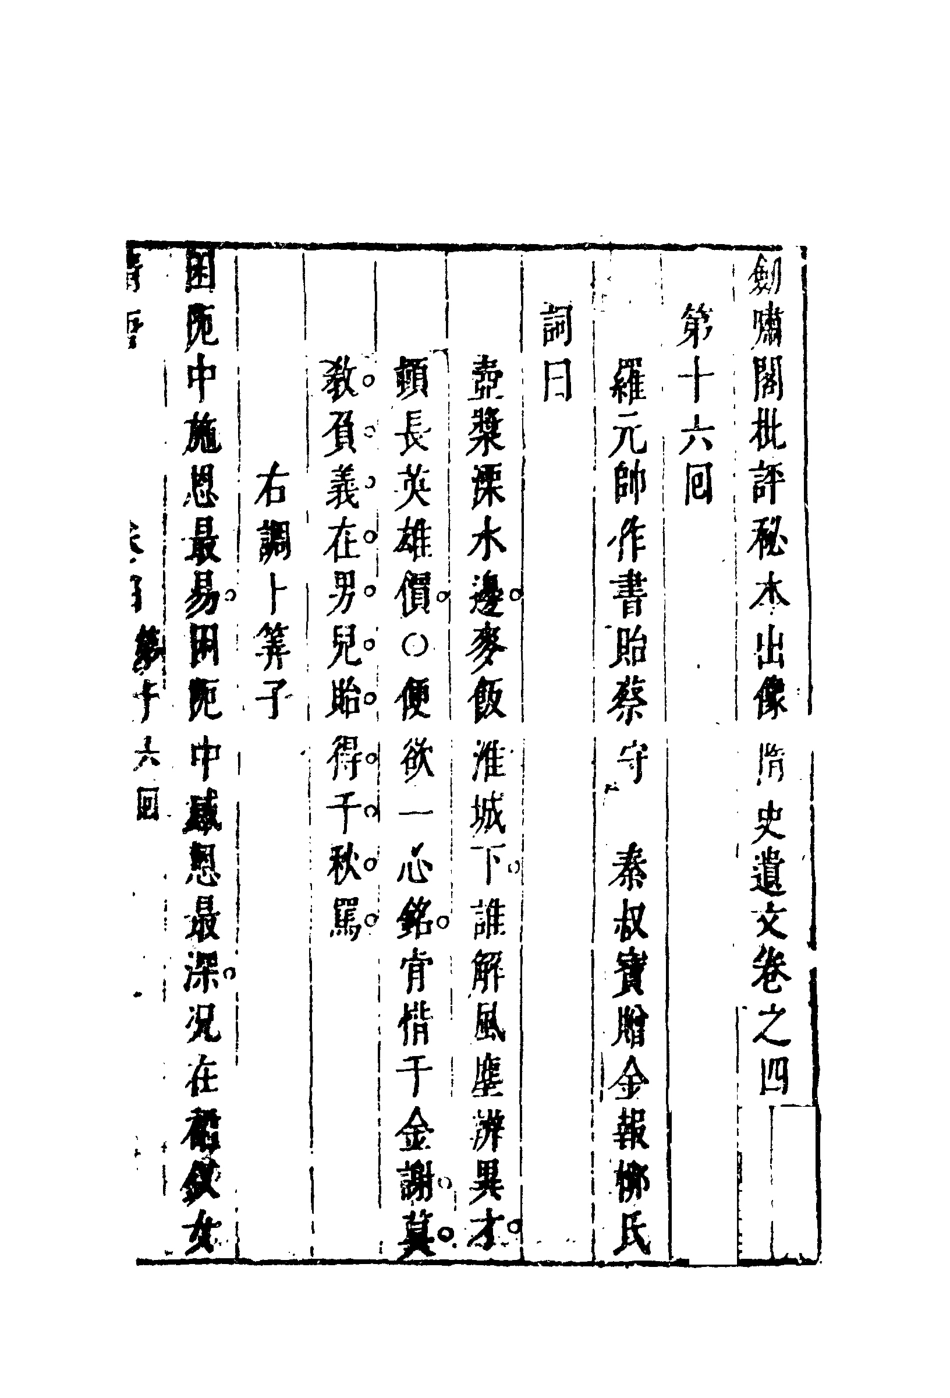 劍嘯閣批評秘本出像隋史遺文卷之四
第十六回
羅元帥作書貽蔡守　秦叔寶贈金報栁氏
詞曰
壺漿溧水邊。麥飯淮城下。誰解風塵辨異才。
頓長英雄價。〇便欲一心銘。肯惜千金謝。莫。
教。負。義。在。男。兒。貽。得。千。秋。罵。
右調卜筭子
困阨中施恩最易。困阨中感恩最深。况在裙釵女
第十六回